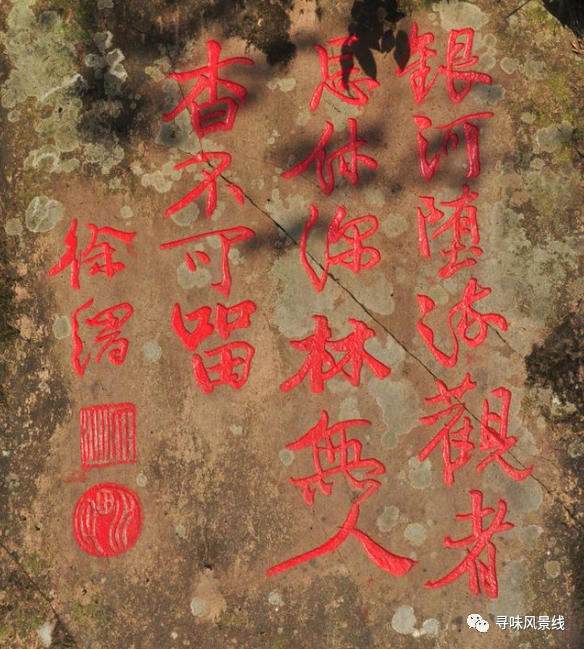 銀河堕流觀者
思休深林無人
杳不可留
徐渭
寻味风景线